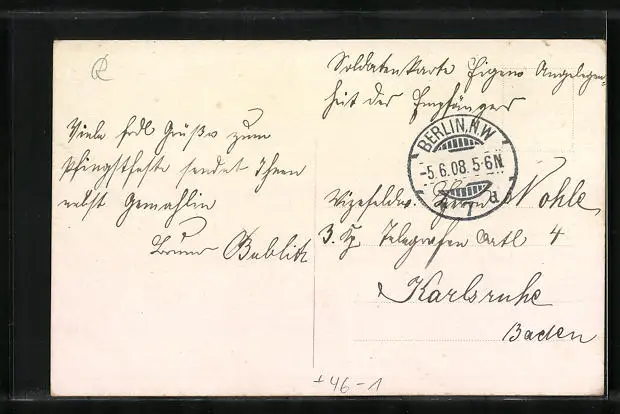 Soldatenkarte Eigene Angelegen=
heit des Empfängers
Viele frdl Grüße zum
Pfingstfeste sendet Ihnen
nebst Gemahlin
Bruno Bublitz
BERLIN.N.W
-5.6.08.5-6N.
Vizefeldw. Herrn Nohle
3. Kp Telegrafen Batl 4
Karlsruhe
Baden
+46-1